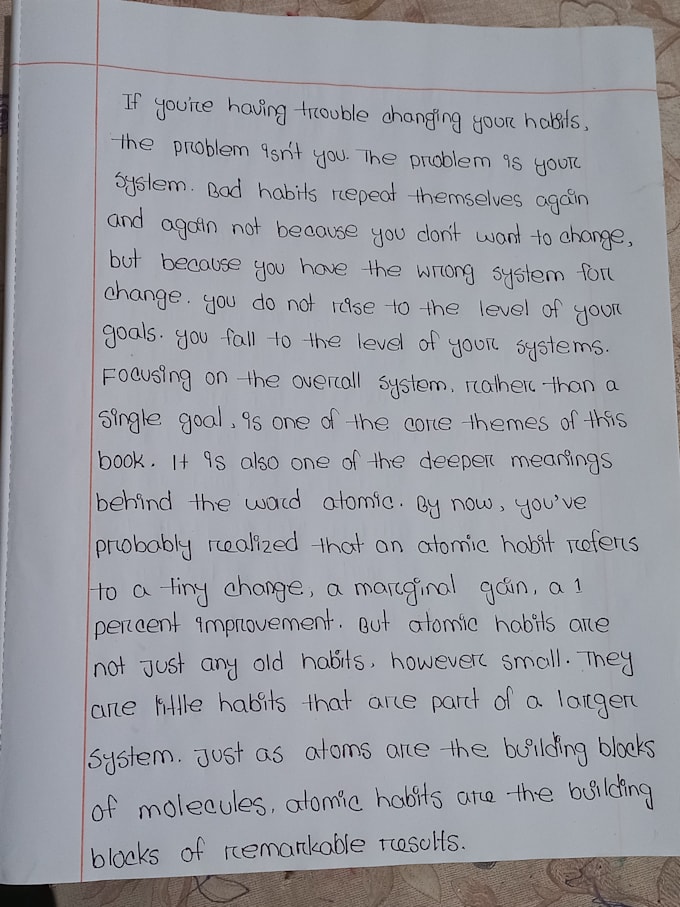 If you're having trouble changing your habits,
the problem isn't you. The problem is your
system. Bad habits repeat themselves again
and again not because you don't want to change,
but because you have the wrong system for
change. you do not rise to the level of your
goals. you fall to the level of your systems.
Focusing on the overall system, rather than a
single goal, is one of the core themes of this
book. It is also one of the deeper meanings
behind the word atomic. By now, you've
probably realized that an atomic habit refers
to a tiny change, a marginal gain, a 1
percent improvement. But atomic habits are
not just any old habits, however small. They
are little habits that are part of a larger
system. Just as atoms are the building blocks
of molecules, atomic habits are the building
blocks of remarkable results.